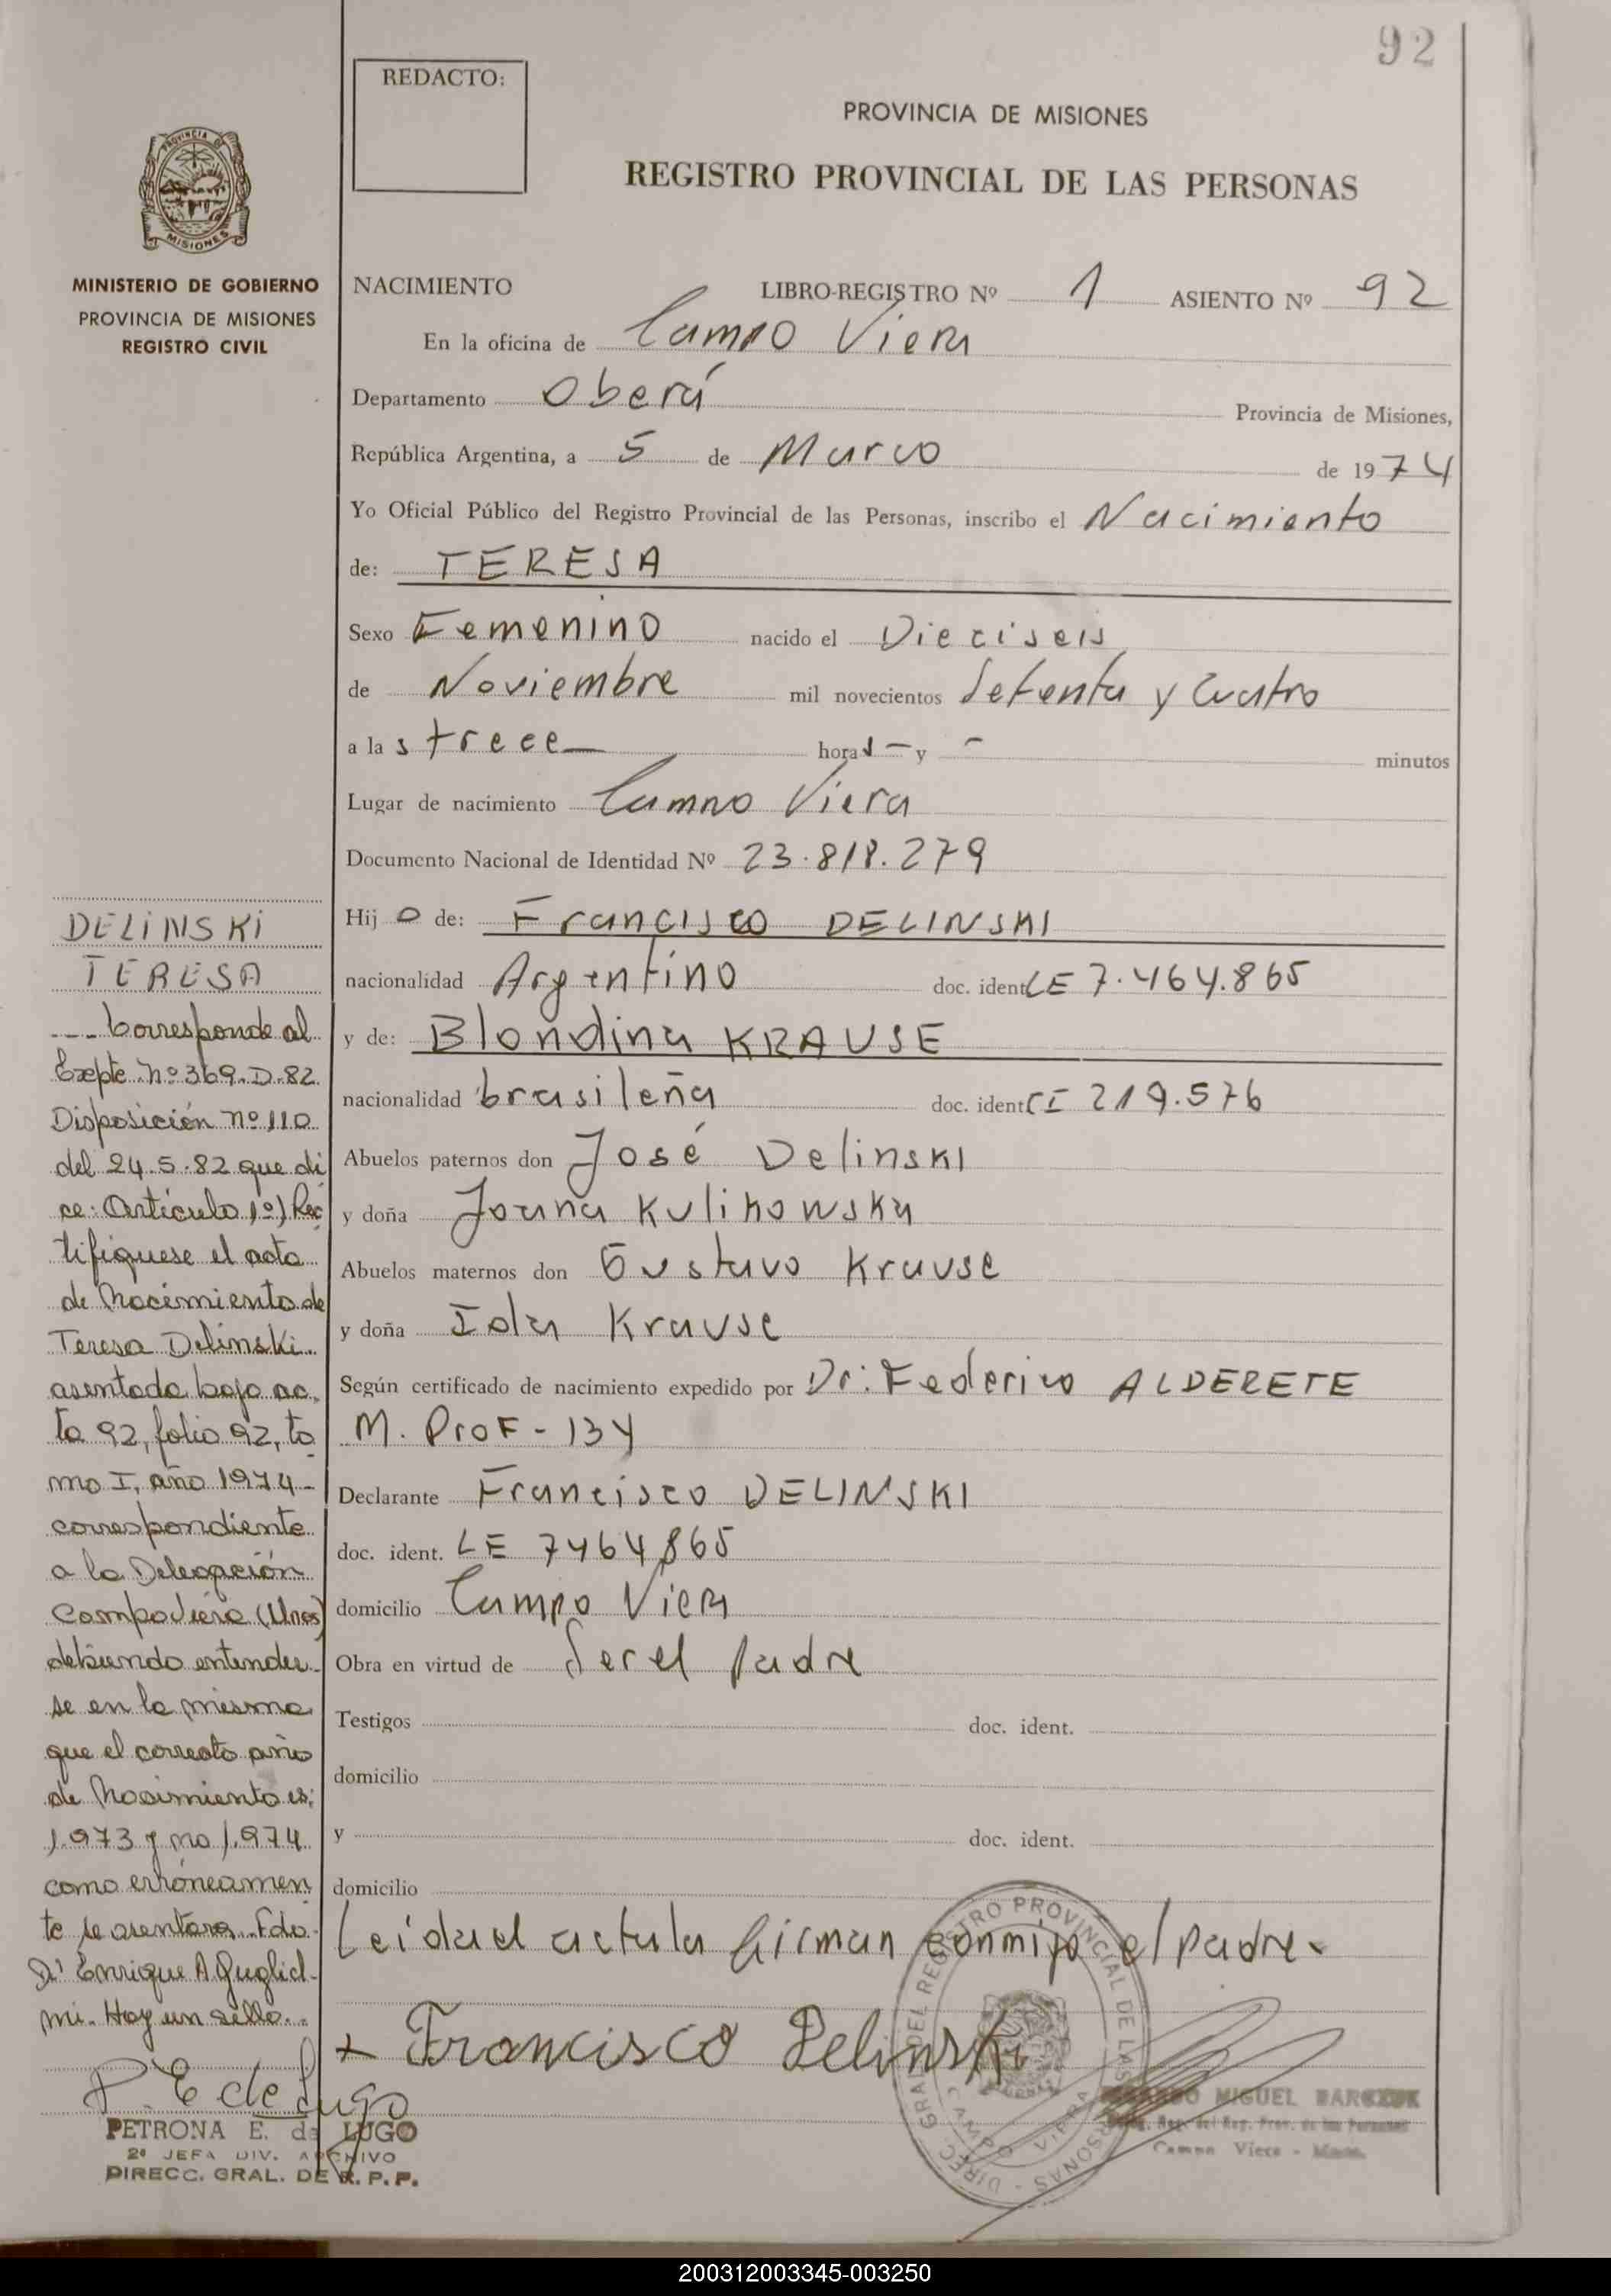 92
REDACTO:
PROVINCIA DE MISIONES
REGISTRO PROVINCIAL DE LAS PERSONAS
PROVINCIA
MISIONES
MINISTERIO DE GOBIERNO
PROVINCIA DE MISIONES
REGISTRO CIVIL
NACIMIENTO LIBRO-REGISTRO Nº 1 ASIENTO Nº 92
En la oficina de Campo Viera
Departamento Oberá Provincia de Misiones,
República Argentina, a 5 de Marzo de 1974
Yo Oficial Público del Registro Provincial de las Personas, inscribo el Nacimiento
de: TERESA
Sexo Femenino nacido el Dieciseis
de Noviembre mil novecientos Setenta y Cuatro
a las trece horas — y —
minutos
Lugar de nacimiento Campo Viera
Documento Nacional de Identidad Nº 23.818.279
Hij o de: Francisco DELINSKI
nacionalidad Argentino doc. ident LE 7.464.865
y de: Blondina KRAUSE
nacionalidad brasileña doc. ident CI 219.576
Abuelos paternos don José Delinski
y doña Joana Kulikowska
Abuelos maternos don Gustavo Krause
y doña Ida Krause
Según certificado de nacimiento expedido por Dr. Federico ALDERETE
M. Prof - 134
Declarante Francisco DELINSKI
doc. ident. LE 7464865
domicilio Campo Viera
Obra en virtud de Ser el padre
Testigos doc. ident.
domicilio
y doc. ident.
domicilio
Leida el acta la firman conmigo el padre.
+ Francisco Delinski
DELINSKI
TERESA
--- Corresponde al
Expte. nº 369.D.82.
Disposición nº 110
del 24.5.82 que di
ce: Artículo 1º) Rec
tifiquese el acta
de Nacimiento de
Teresa Delinski.
asentada bajo ac.
ta 92, folio 92, to
mo I, año 1974-
correspondiente
a la Delegación
Campo Viera (Mnes)
debiendo entender
se en la misma
que el correcto año
de Nacimiento es:
1.973 y no 1.974
como erróneamen
te se asentara. Fdo.
Dr Enrique A. Gugliel-
mi. Hay un sello.
P. E de Lugo
PETRONA E. de LUGO
2ª JEFA DIV. ARCHIVO
DIRECC. GRAL. DE R. P. P.
DIREC. GRAL. DEL REGISTRO PROVINCIAL DE LAS PERSONAS
CAMPO VIERA
MIGUEL BARCZUK
Reg. del Reg. Prov. de las Personas
Campo Viera - Mnes.
200312003345-003250